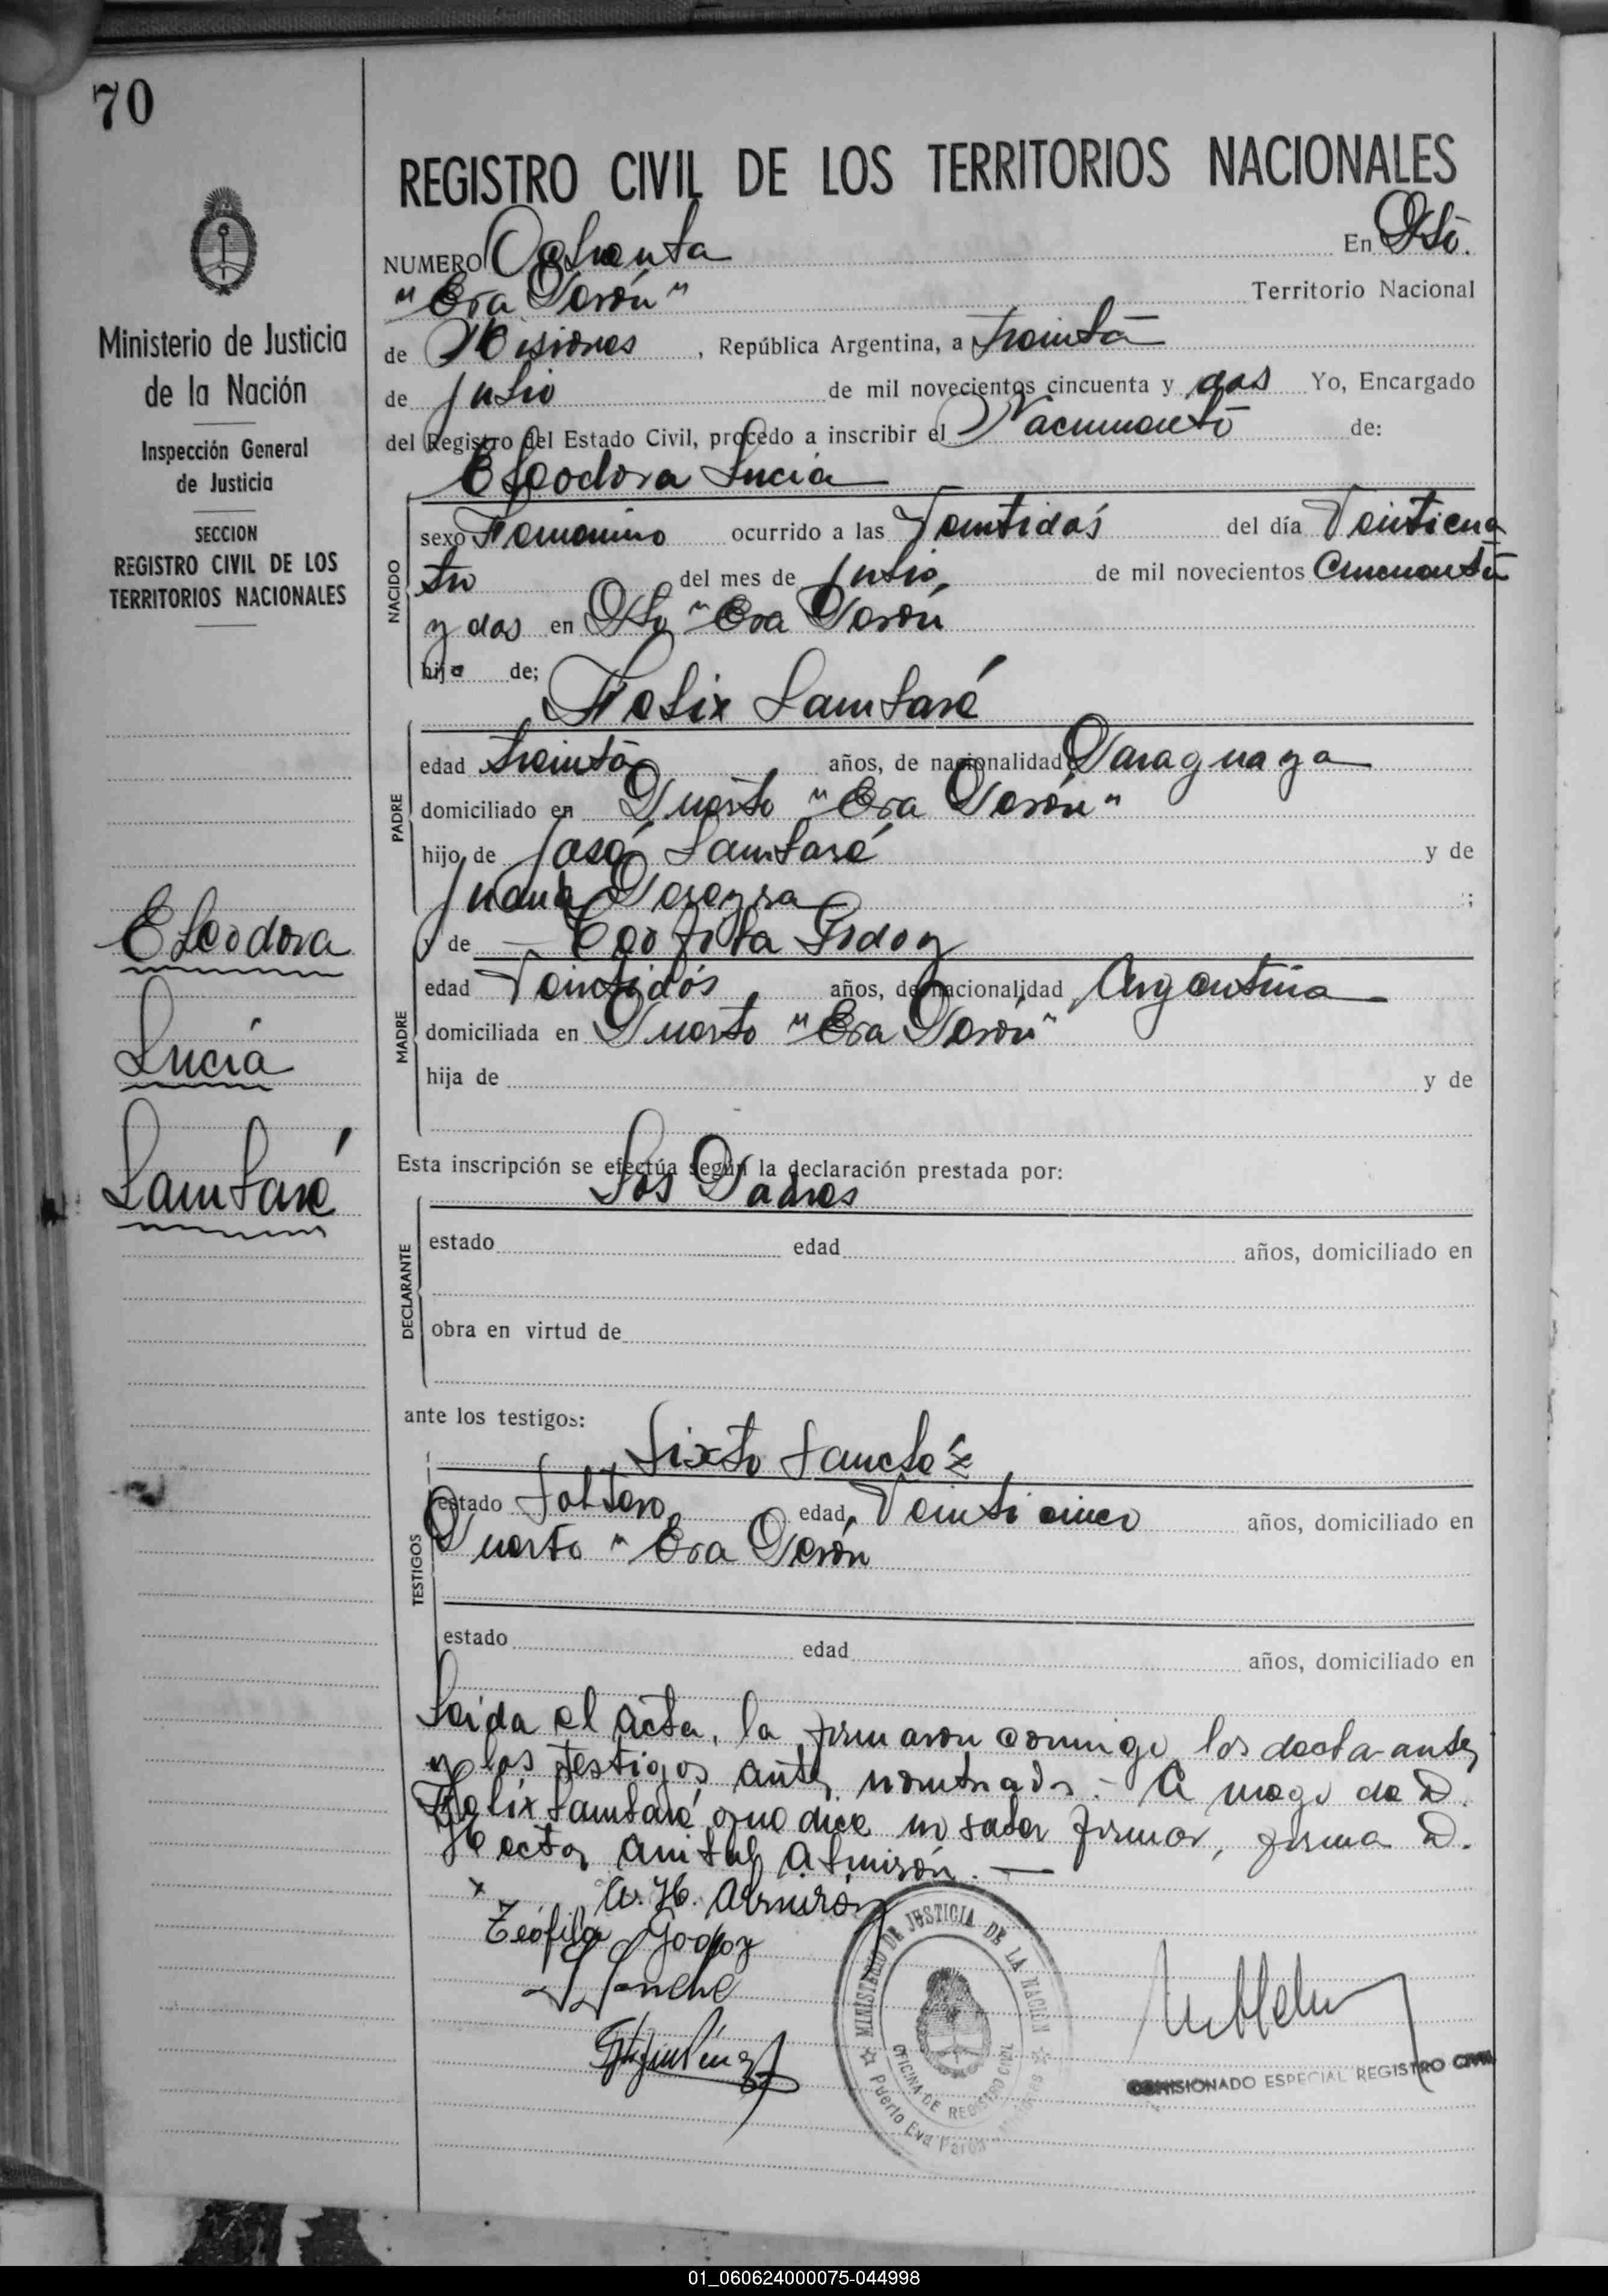 70
REGISTRO CIVIL DE LOS TERRITORIOS NACIONALES
Ministerio de Justicia
de la Nación
Inspección General
de Justicia
SECCION
REGISTRO CIVIL DE LOS
TERRITORIOS NACIONALES
Eleodora
Lucía
Lambaré
NUMERO Ochenta En Pto.
"Eva Perón" Territorio Nacional
de Misiones, República Argentina, a treinta
de Julio de mil novecientos cincuenta y dos Yo, Encargado
del Registro del Estado Civil, procedo a inscribir el Nacimiento de:
Eleodora Lucia
NACIDO
sexo Femenino ocurrido a las Veintidós del día Veinticua
tro del mes de Julio, de mil novecientos Cincuenta
y dos en Pto "Eva Perón
hija de;
Felix Lambaré
PADRE
edad treinta años, de nacionalidad Paraguaya
domiciliado en Puerto "Eva Perón"
hijo de José Lambaré y de
Juana Pereyra ;
y de — Teofila Godoy
MADRE
edad Veintidós años, de nacionalidad Argentina
domiciliada en Puerto "Eva Perón"
hija de y de
Esta inscripción se efectúa según la declaración prestada por:
Los Padres
DECLARANTE
estado edad años, domiciliado en
obra en virtud de
ante los testigos:
Sixto Sanchéz
TESTIGOS
estado Soltero edad, Veinticinco años, domiciliado en
Puerto "Eva Perón
estado edad años, domiciliado en
Leida el acta, la firmaron conmigo los declarantes
y los testigos antes nombrados - A ruego de D.
Felix Lambaré que dice no saber firmar, firma D.
Hector Anibal Almirón. —
x A. H. Almirón
Teófila Godoy
S Sanche
MINISTERIO DE JUSTICIA DE LA NACION
OFICINA DE REGISTRO CIVIL
Puerto Eva Perón - Misiones
COMISIONADO ESPECIAL REGISTRO CIVIL
01_060624000075-044998